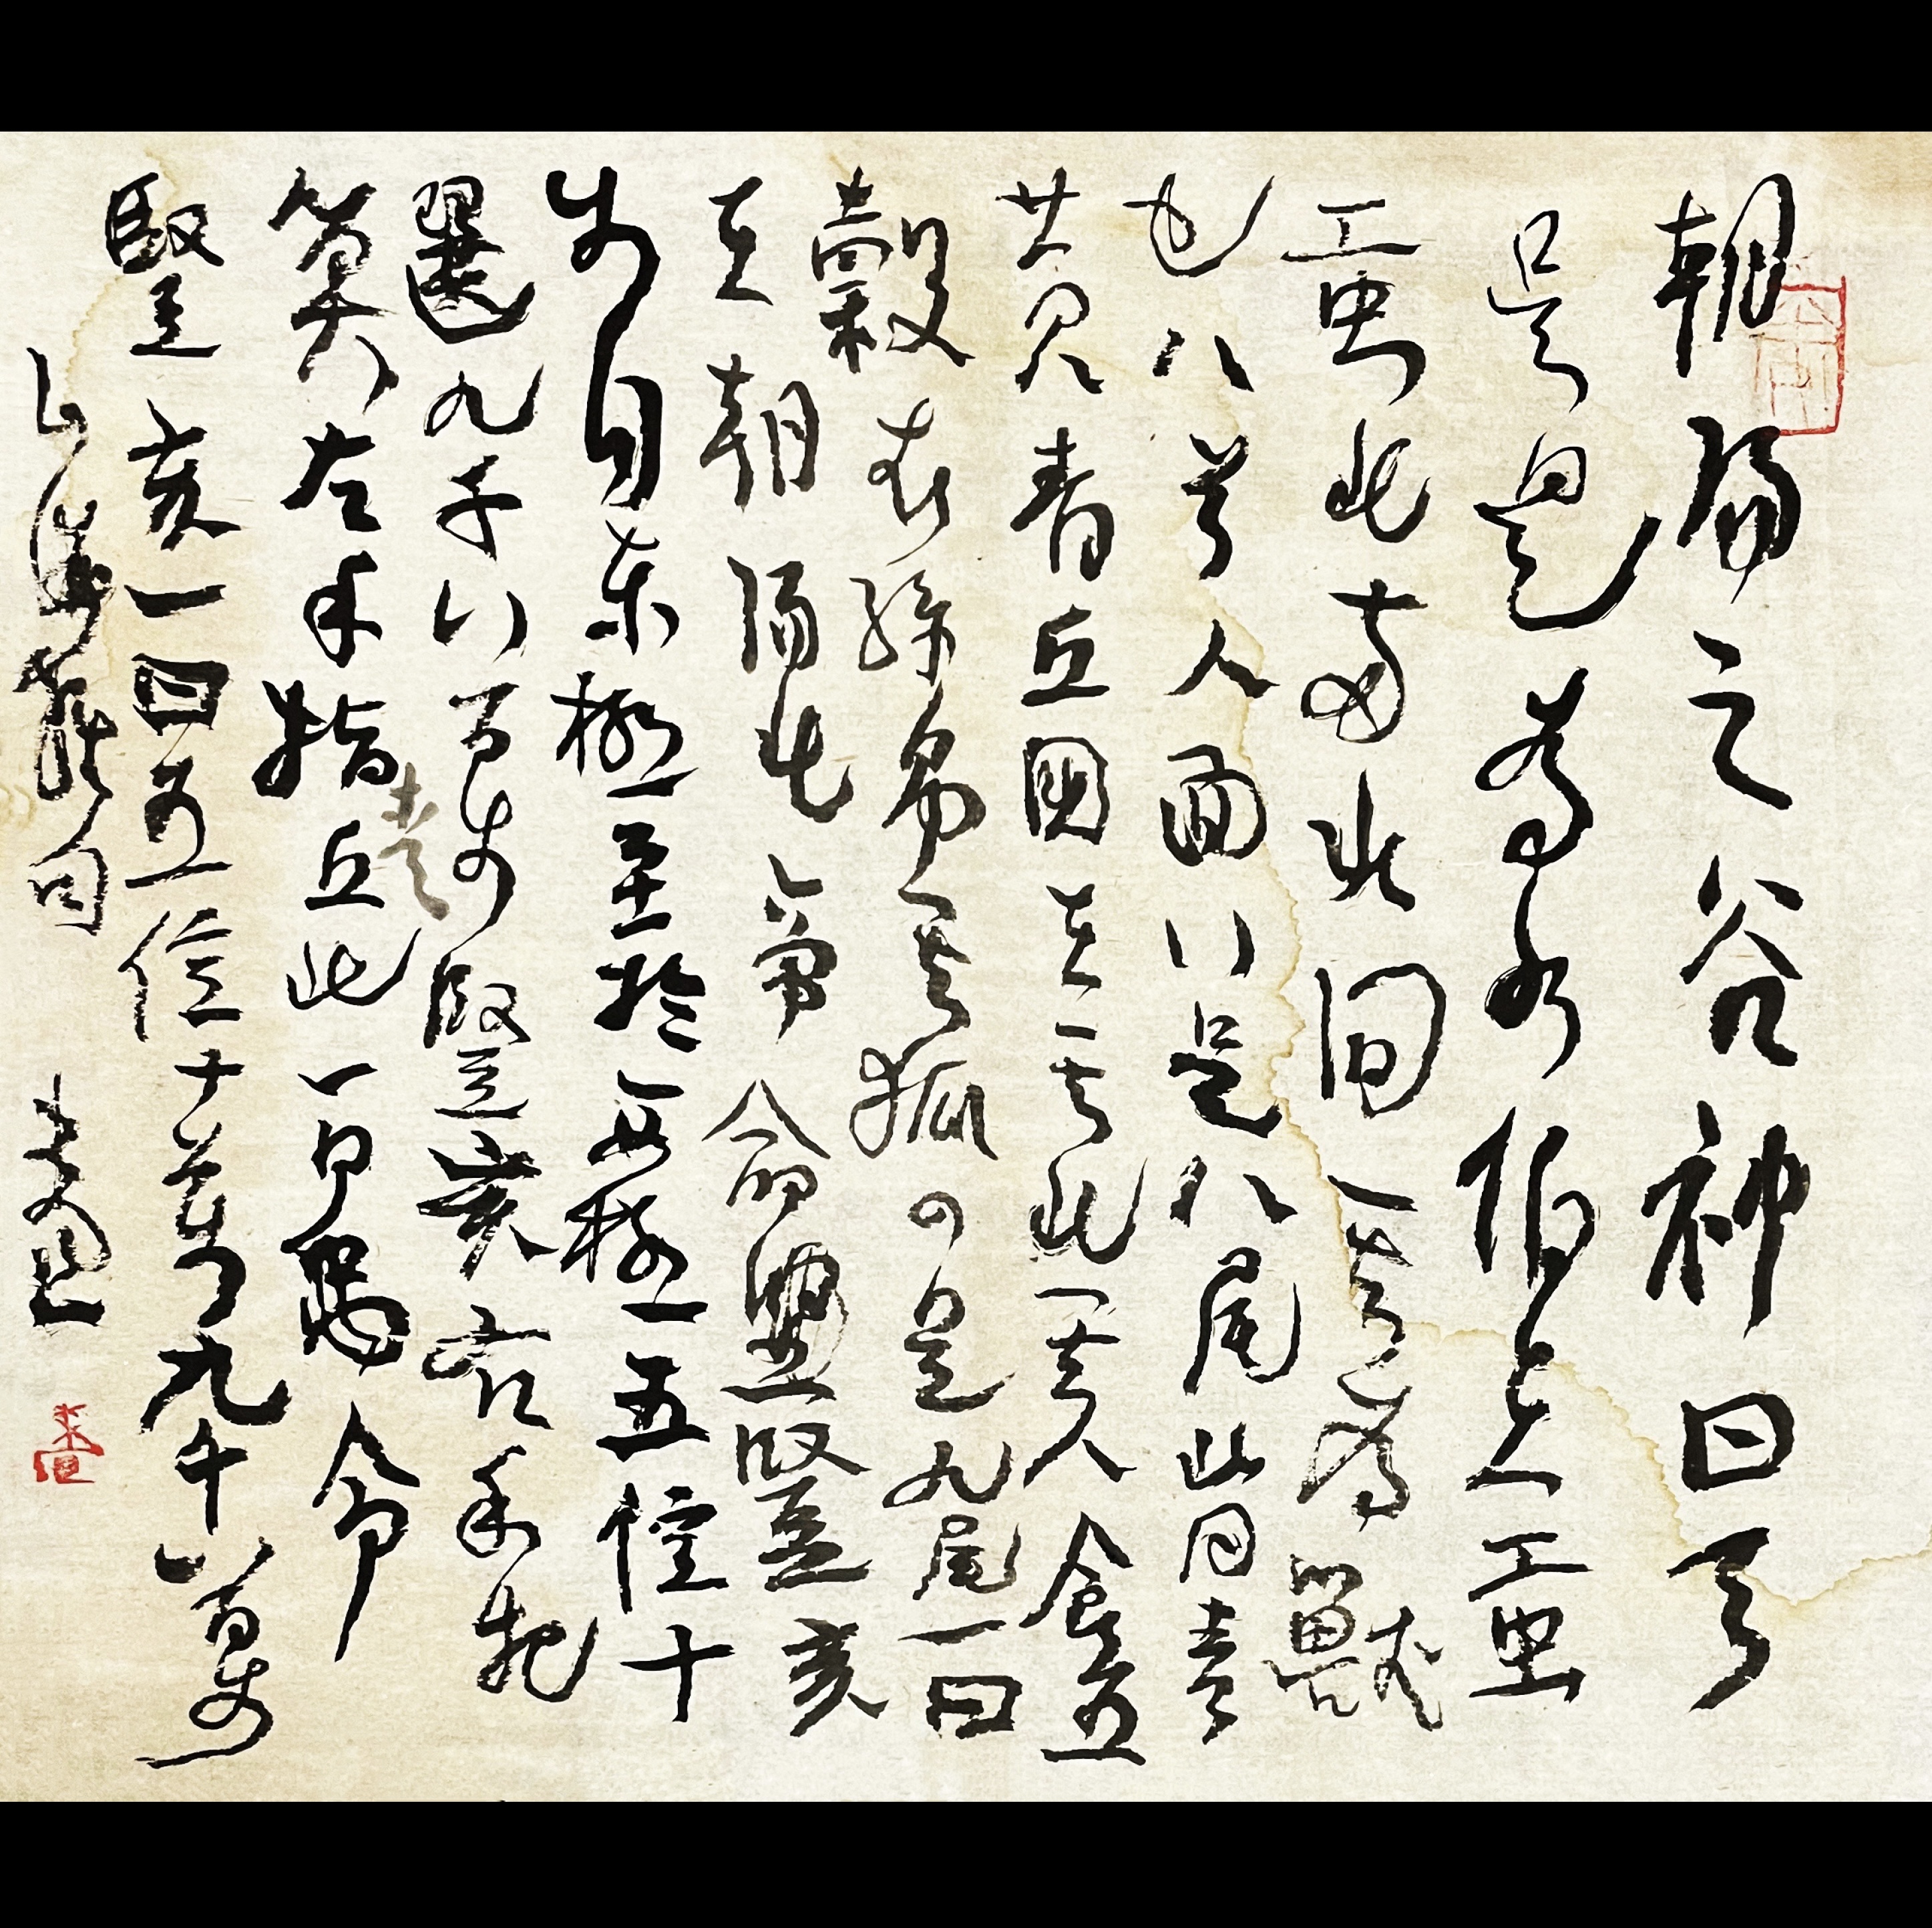 朝陽之谷神曰天
吳是為水伯在𧈫
𧈫北兩水間其為獸
也八首人面八足八尾皆青
黃青丘國在其北其人食五
穀衣絲帛其狐四足九尾一曰
在朝陽北帝命豎亥
步自東極至於西極五億十
選九千八百步豎亥右手把
算左手指青丘北一曰禹令
豎亥一曰五億十萬九千八百步
山海經句